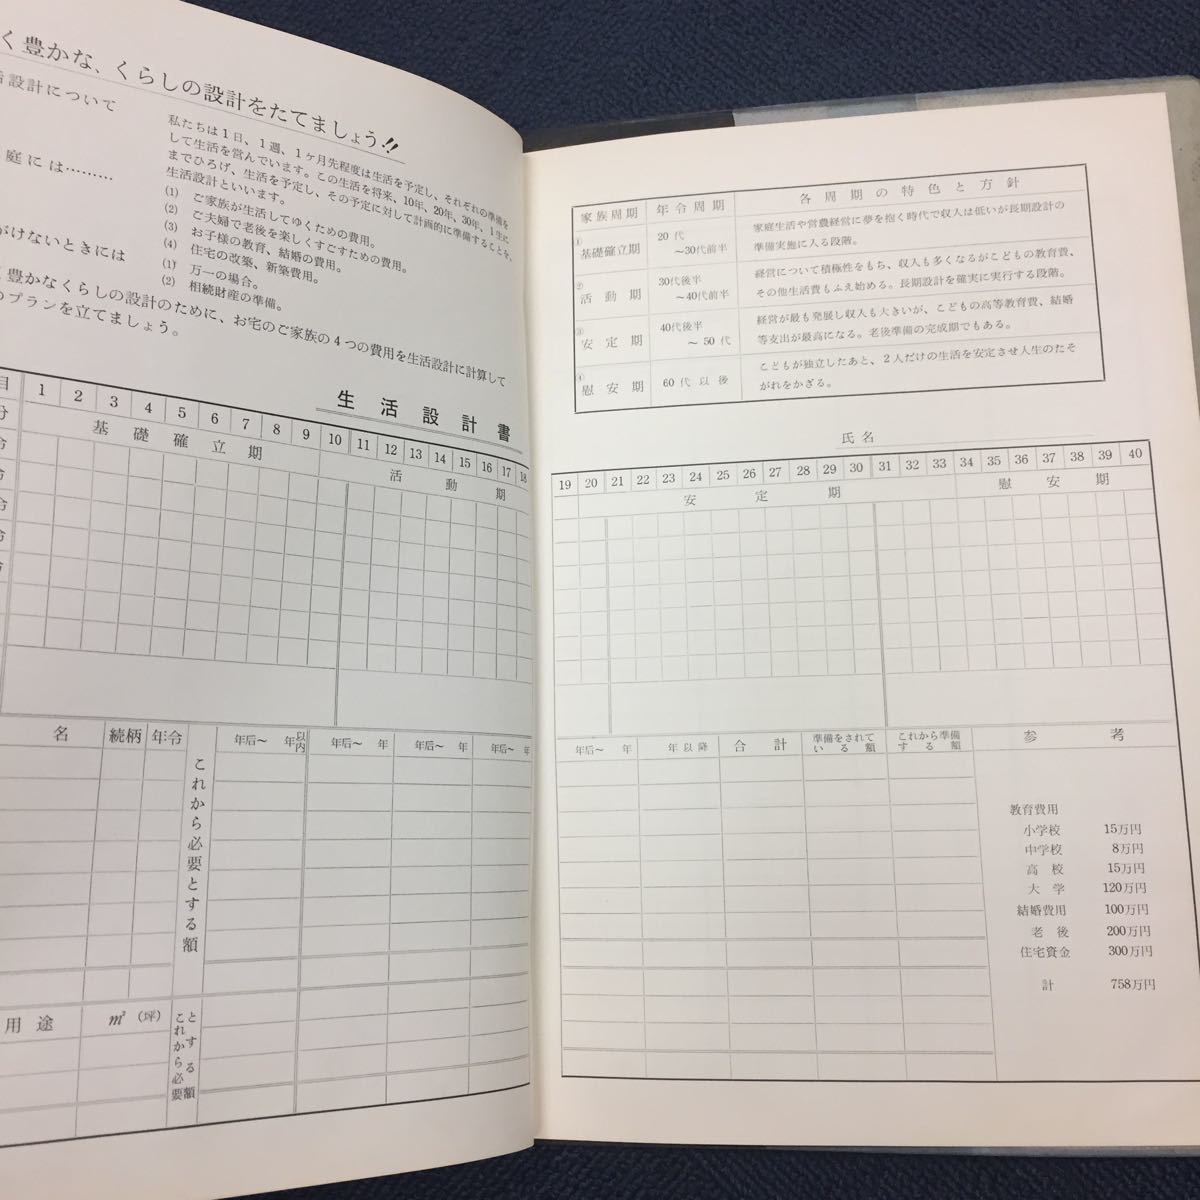 く豊かな、くらしの設計をたてましょう!!
活設計について
庭には………
がけないときには
私たちは1日、1週、1ケ月先程度は生活を予定し、それぞれの準備を
して生活を営んでいます。この生活を将来、10年、20年、30年、1生に
までひろげ、生活を予定し、その予定に対して計画的に準備することを、
生活設計といいます。
(1) ご家族が生活してゆくための費用。
(2) ご夫婦で老後を楽しくすごすための費用。
(3) お子様の教育、結婚の費用。
(4) 住宅の改築、新築費用。
(1) 万一の場合。
(2) 相続財産の準備。
豊かなくらしの設計のために、お宅のご家族の4つの費用を生活設計に計算して
のプランを立てましょう。
生活設計書
目 1 2 3 4 5 6 7 8 9 10 11 12 13 14 15 16 17 18
分 基礎確立期 活動期
令
令
令
令
名 続柄 年令 これから必要とする額 年后〜 年以内 年后〜 年 年后〜 年 年后〜 年
用途 m² (坪) これから必要とする額
家族周期 年令周期 各周期の特色と方針
① 基礎確立期 20代〜30代前半 家庭生活や営農経営に夢を抱く時代で収入は低いが長期設計の
準備実施に入る段階。
② 活動期 30代後半〜40代前半 経営について積極性をもち、収入も多くなるがこどもの教育費、
その他生活費もふえ始める。長期設計を確実に実行する段階。
③ 安定期 40代後半〜50代 経営が最も発展し収入も大きいが、こどもの高等教育費、結婚
等支出が最高になる。老後準備の完成期でもある。
④ 慰安期 60代以後 こどもが独立したあと、2人だけの生活を安定させ人生のたそ
がれをかざる。
氏名
19 20 21 22 23 24 25 26 27 28 29 30 31 32 33 34 35 36 37 38 39 40
安定期 慰安期
年后〜 年 年以降 合計 準備をされている額 これから準備する額 参考
教育費用
小学校 15万円
中学校 8万円
高校 15万円
大学 120万円
結婚費用 100万円
老後 200万円
住宅資金 300万円
計 758万円